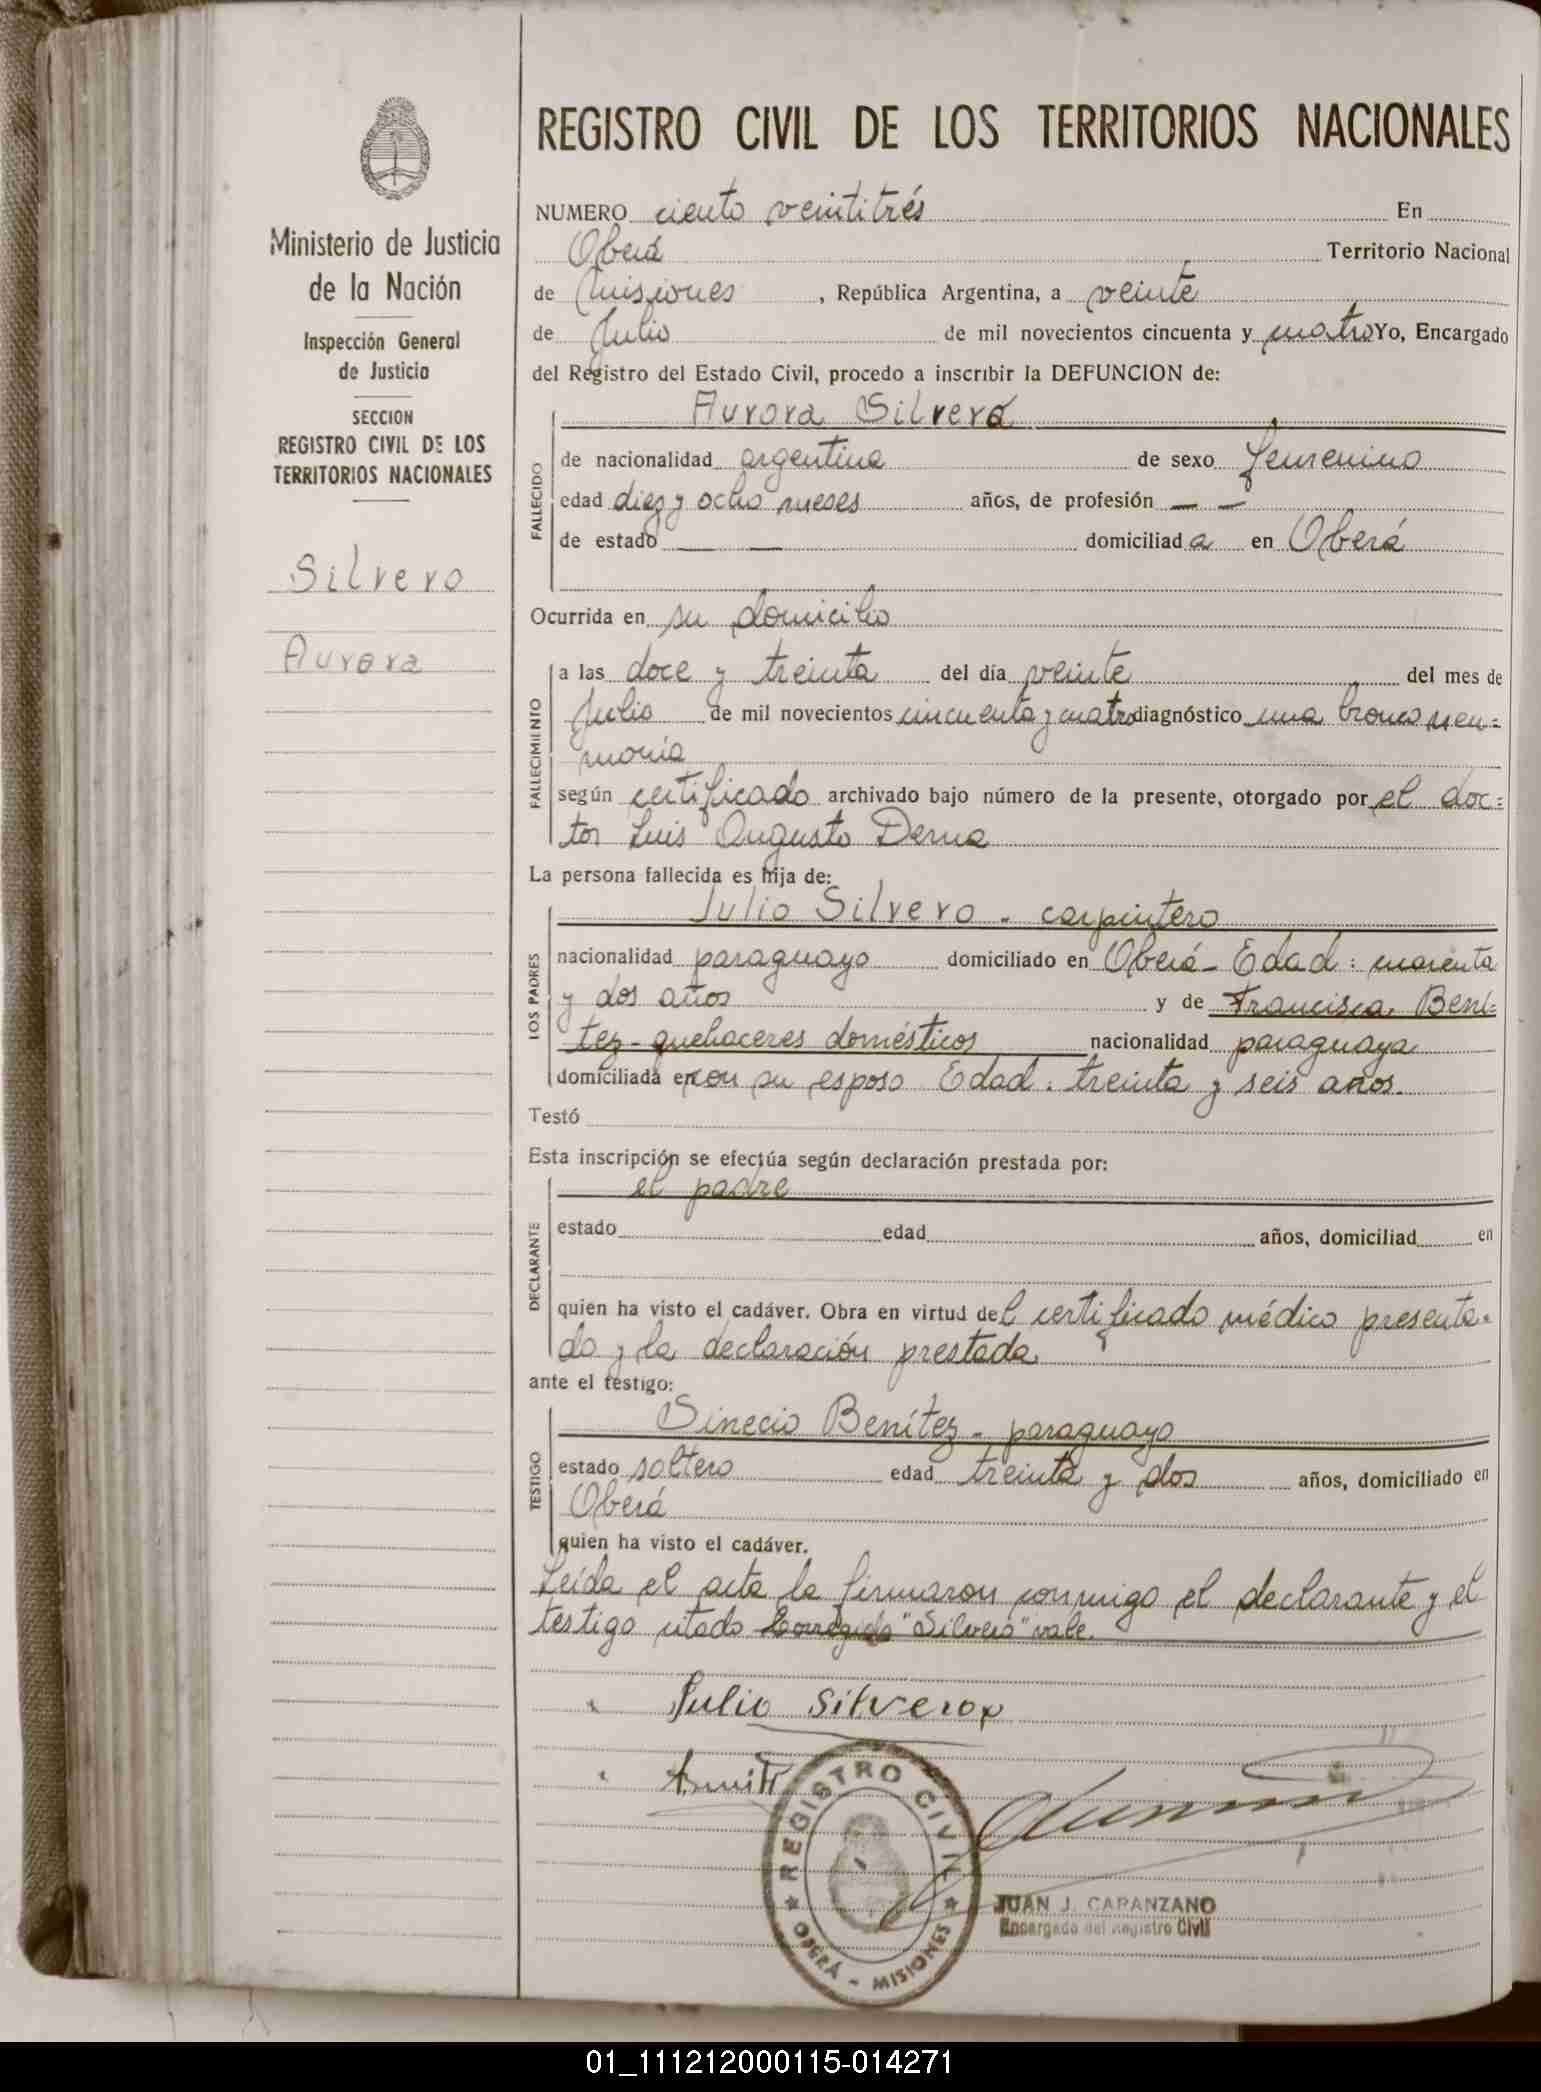 REGISTRO CIVIL DE LOS TERRITORIOS NACIONALES
Ministerio de Justicia
de la Nación
Inspección General
de Justicia
SECCION
REGISTRO CIVIL DE LOS
TERRITORIOS NACIONALES
Silvero
Aurora
NUMERO ciento veintitrés En
Oberá Territorio Nacional
de Misiones, República Argentina, a veinte
de Julio de mil novecientos cincuenta y cuatro Yo, Encargado
del Registro del Estado Civil, procedo a inscribir la DEFUNCION de:
Aurora Silvero
FALLECIDO
de nacionalidad argentina de sexo femenino
edad diez y ocho meses años, de profesión — —
de estado — — domiciliada en Oberá
Ocurrida en su domicilio
FALLECIMIENTO
a las doce y treinta del día veinte del mes de
Julio de mil novecientos cincuenta y cuatro diagnóstico una bronconeu=
monía
según certificado archivado bajo número de la presente, otorgado por el doc=
tor Luis Augusto Derna
La persona fallecida es hija de:
LOS PADRES
Julio Silvero - carpintero
nacionalidad paraguayo domiciliado en Oberá - Edad: cuarenta
y dos años y de Francisca Bení=
tez - quehaceres domésticos nacionalidad paraguaya
domiciliada en con su esposo Edad: treinta y seis años.
Testó
Esta inscripción se efectúa según declaración prestada por:
DECLARANTE
el padre
estado edad años, domiciliad en
quien ha visto el cadáver. Obra en virtud del certificado médico presenta-
do y la declaración prestada.
ante el testigo:
TESTIGO
Sinecio Benítez - paraguayo
estado soltero edad treinta y dos años, domiciliado en
Oberá
quien ha visto el cadáver.
Leída el acta la firmaron conmigo el declarante y el
testigo citado Corregido "Silvero" vale.
Julio Silvero
REGISTRO CIVIL
OBERÁ - MISIONES
JUAN J. CARANZANO
Encargado del Registro Civil
01_111212000115-014271